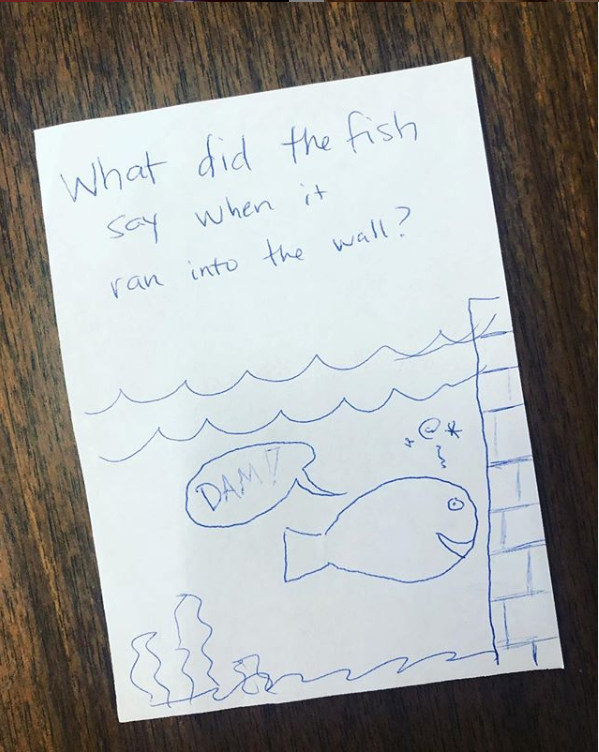 What did the fish
say when it
ran into the wall?
@*
DAM!